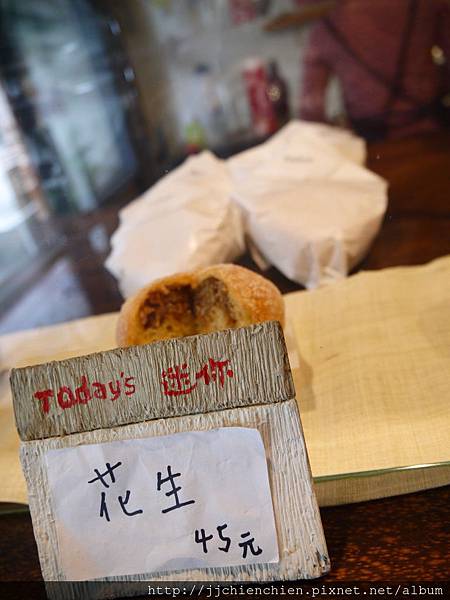 Today's 迷你
花生
45元
http://jjchienchien.pixnet.net/album